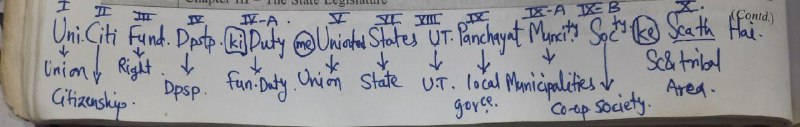 Chapter III – The State Legislature
(Contd.)
I II III IV IV-A V VI VIII IX IX-A IX-B X
Uni. Citi Fund. Dpstp. ki Duty me Unionted States U.T. Panchayat Muncity Socty. ke Scath Hai.
Union Right. Dpsp. Fun. Duty. Union State U.T. local Municipalities Sc & tribal
Citizenship. govce. Co-op. Society. Area.